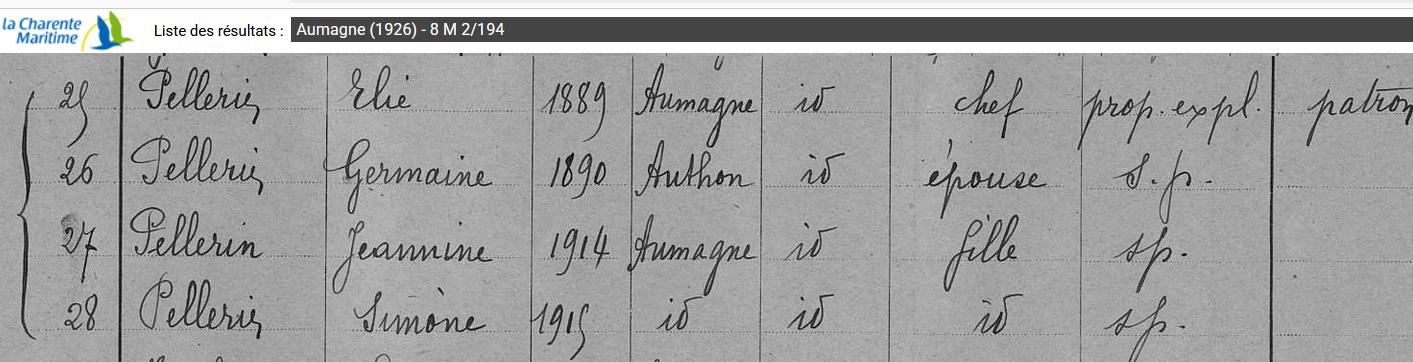 la Charente
Maritime
Liste des résultats : Aumagne (1926) - 8 M 2/194
25 Pellerin Elie 1889 Aumagne id chef prop. expl. patron
26 Pellerin Germaine 1890 Authon id épouse s.p.
27 Pellerin Jeannine 1914 Aumagne id fille sp.
28 Pellerin Simòne 1915 id id id sp.